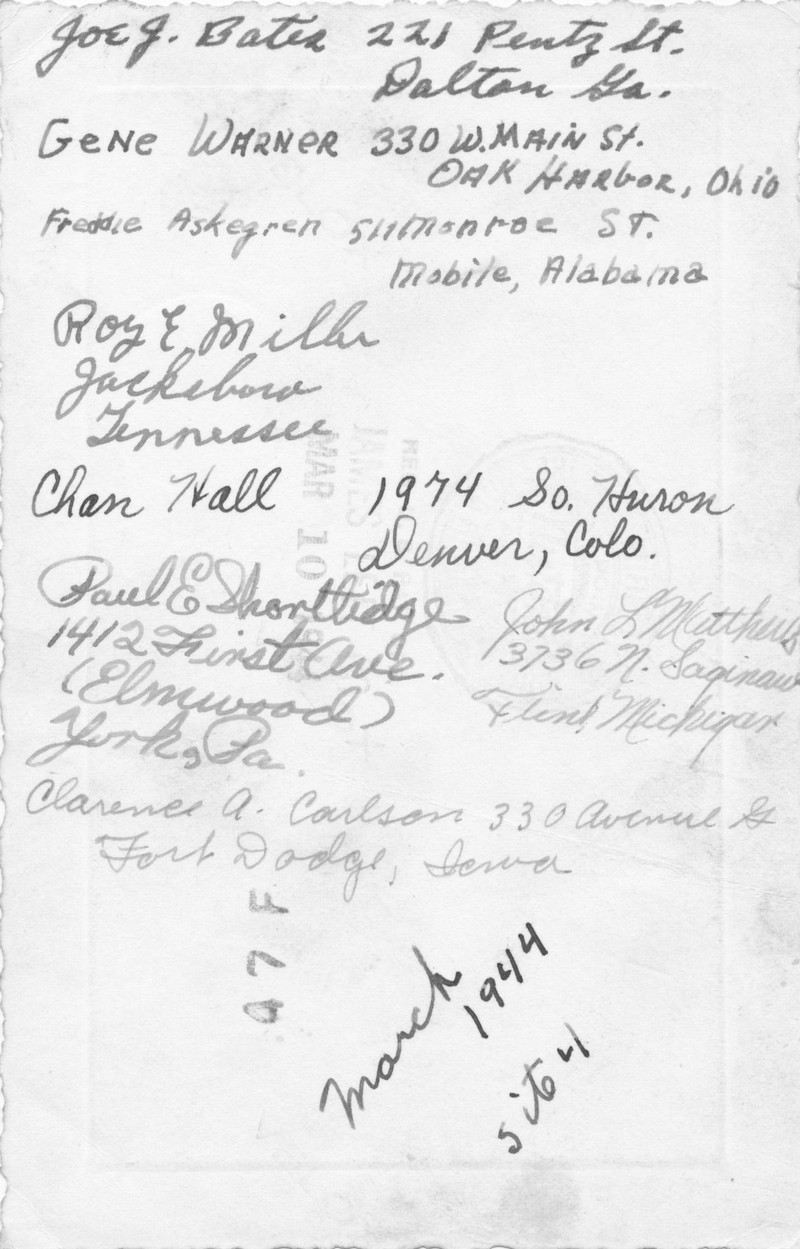 Joe J. Bates 221 Pentz St.
Dalton Ga.
Gene Warner 330 W. Main St.
Oak Harbor, Ohio
Freddie Askegren 511 Monroe St.
Mobile, Alabama
Roy E. Miller
Jacksboro
Tennessee
Chan Hall 1974 So. Huron
Denver, Colo.
Paul E Shortlidge
1412 First Ave.
(Elmwood)
York, Pa.
John L. Matthews
3736 N. Saginaw
Flint, Michigan
Clarence A. Carlson 330 Avenue G
Fort Dodge, Iowa
MAR 10
47 F
March
1944
site 4